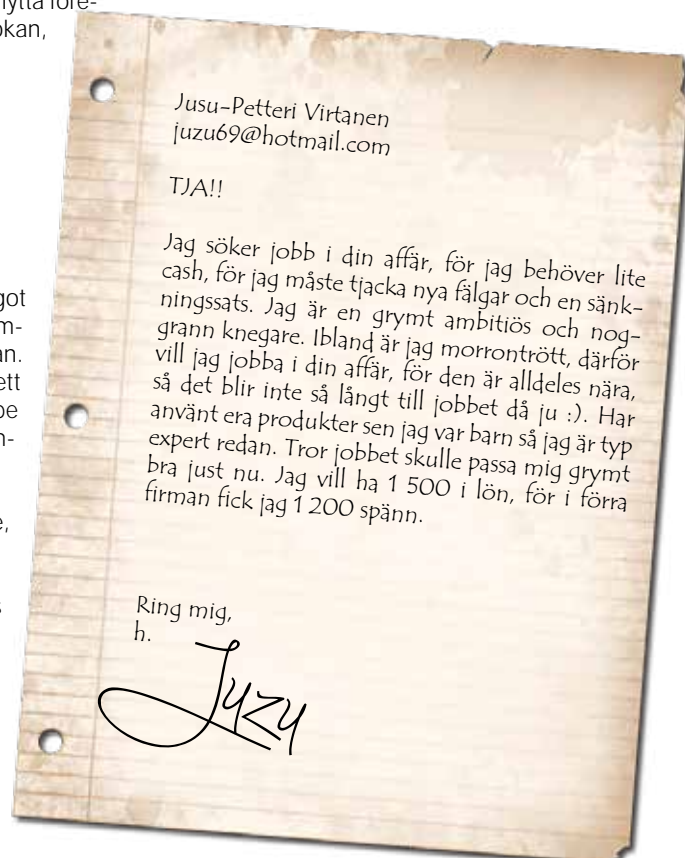 nytta före-
okan,
Jusu-Petteri Virtanen
juzu69@hotmail.com
TJA!!
Jag söker jobb i din affär, för jag behöver lite
cash, för jag måste tjacka nya fälgar och en sänk-
ningssats. Jag är en grymt ambitiös och nog-
grann knegare. Ibland är jag morrontrött, därför
vill jag jobba i din affär, för den är alldeles nära,
så det blir inte så långt till jobbet då ju :). Har
använt era produkter sen jag var barn så jag är typ
expert redan. Tror jobbet skulle passa mig grymt
bra just nu. Jag vill ha 1 500 i lön, för i förra
firman fick jag 1 200 spänn.
Ring mig,
h.
Jyzy